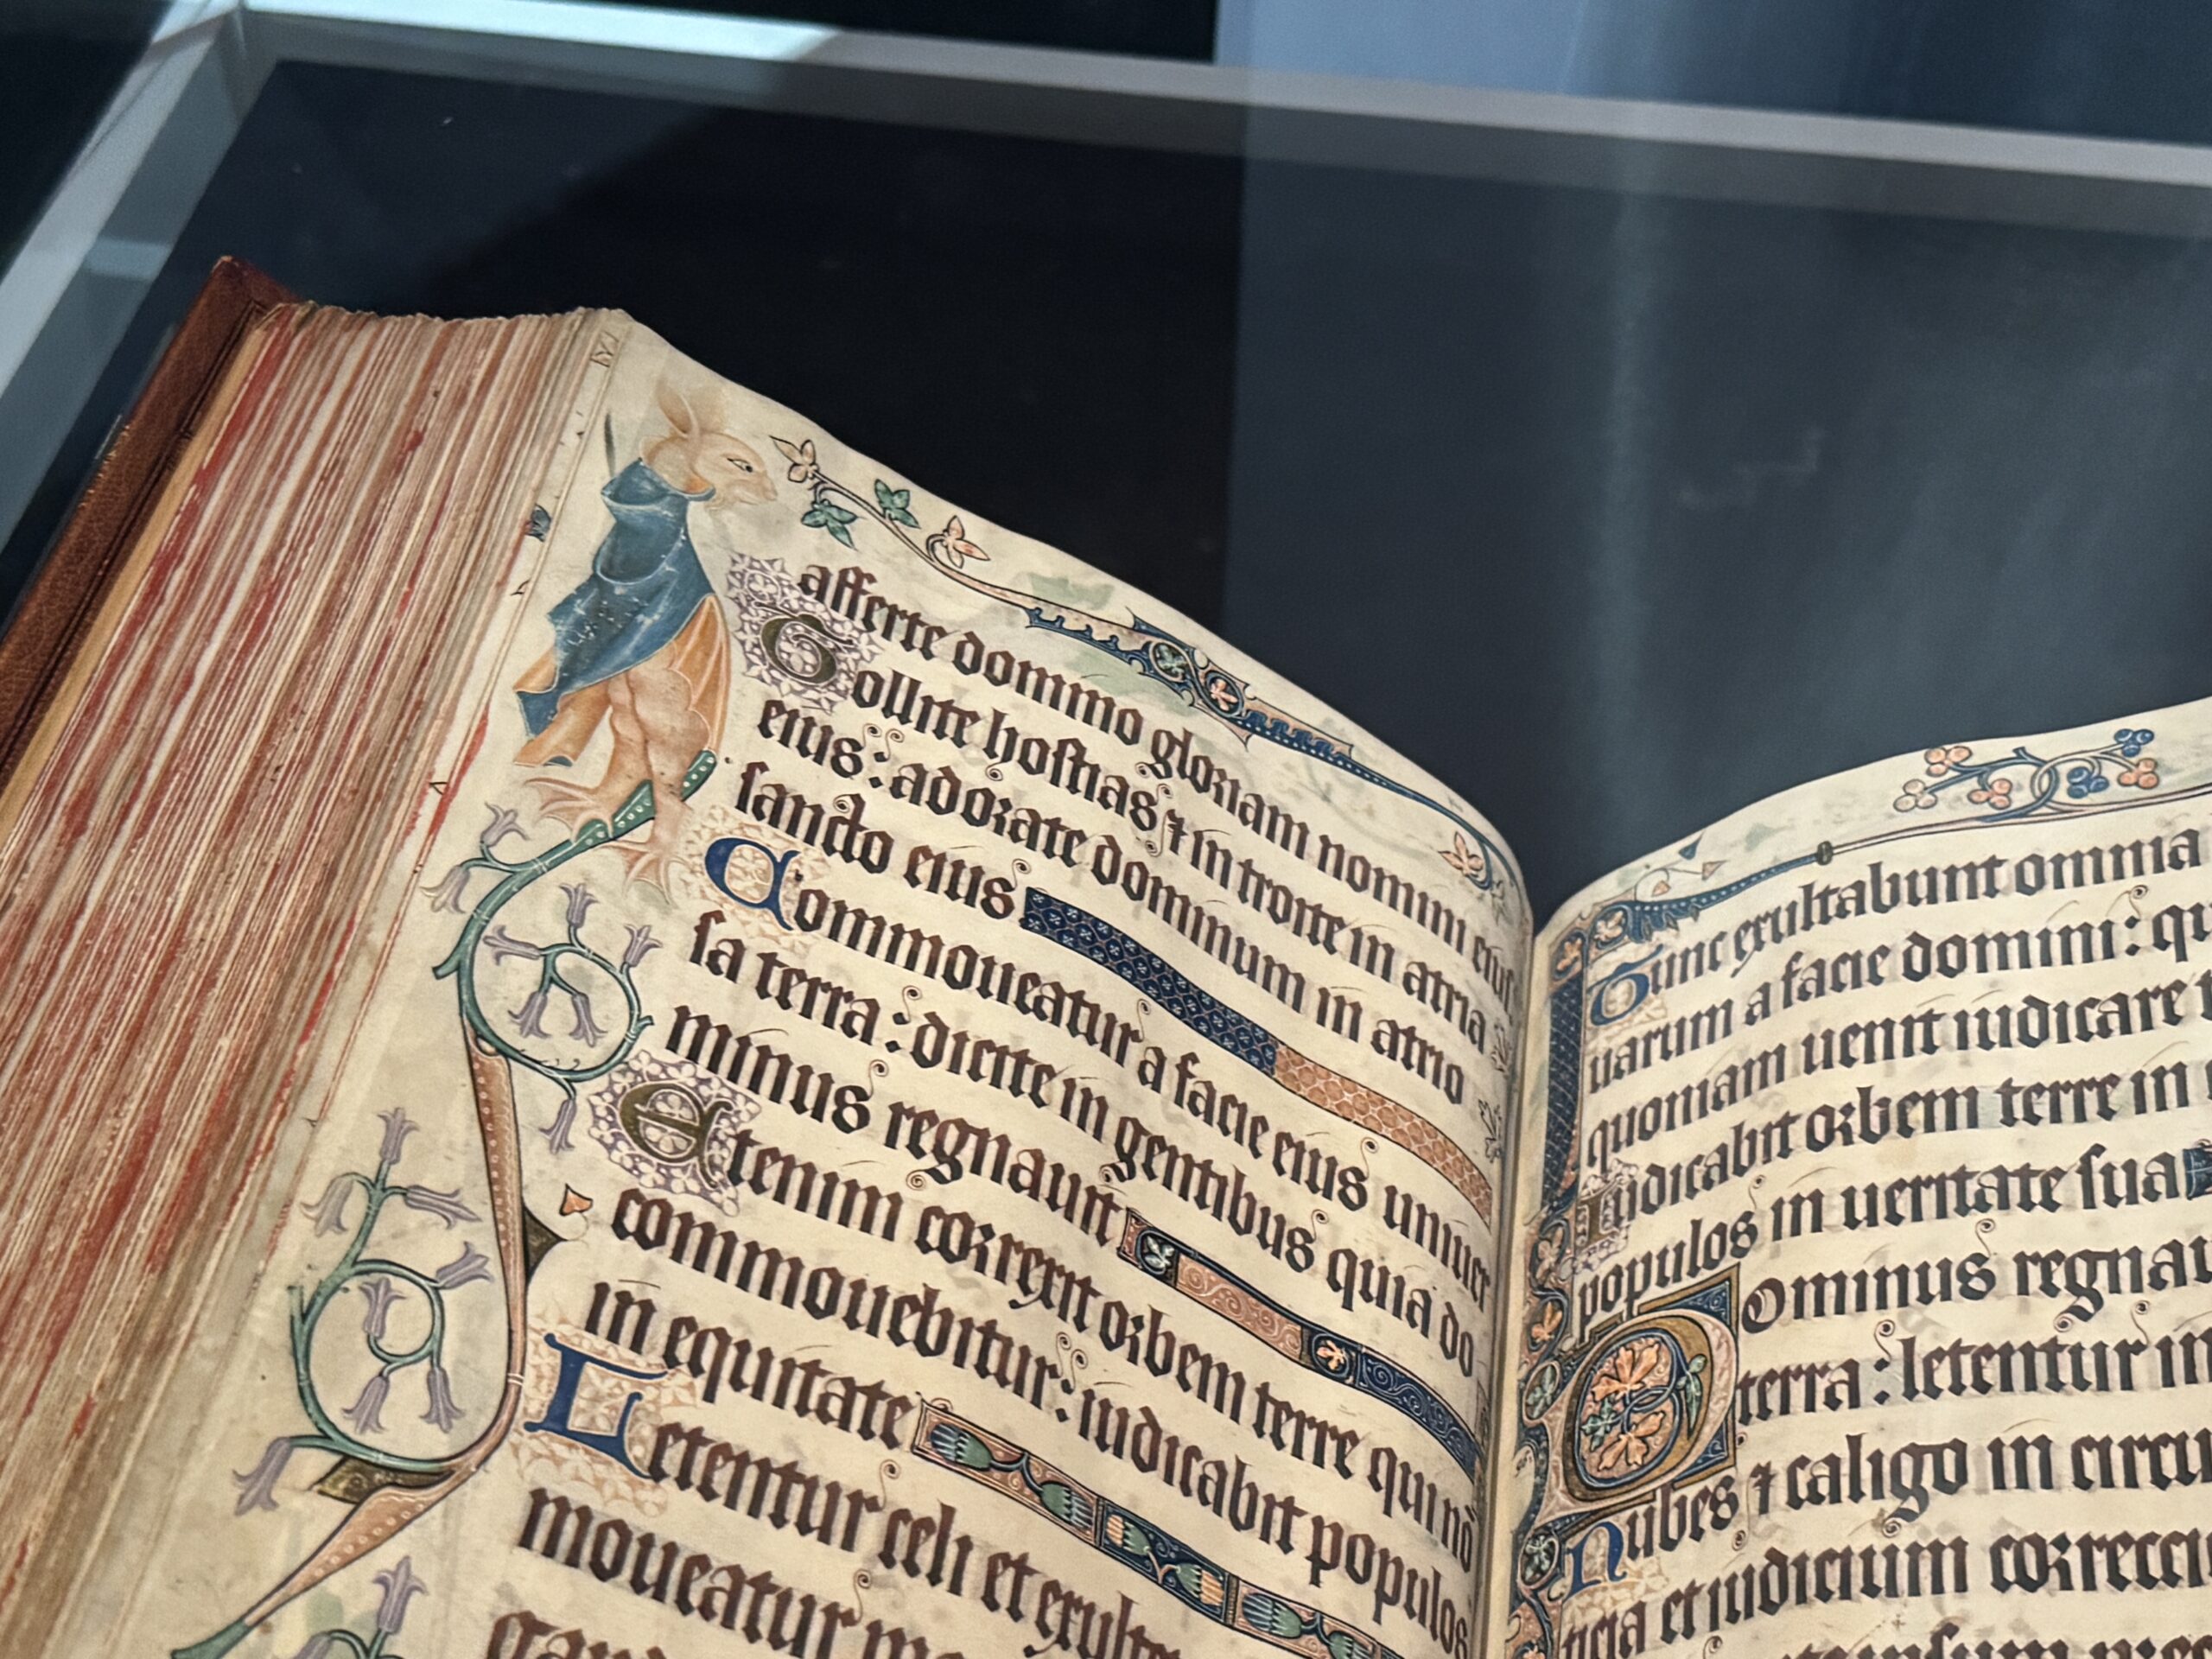 afferte domino gloriam nomini eius
Tollite hostias ⁊ introite in atria
eius : adorate dominum in atrio
sancto eius
Commoueatur a facie eius uniuer
sa terra : dicite in gentibus quia do
minus regnauit
Etenim correxit orbem terre qui nō
commouebitur : iudicabit populos
in equitate
Letentur celi et exulte
moueatur
Tunc exultabunt omnia
uarum a facie domini :
quoniam uenit iudicare
Iudicabit orbem terre in
populos in ueritate sua
Dominus
terra : letentur in
Nubes ⁊ caligo in
et iudicium